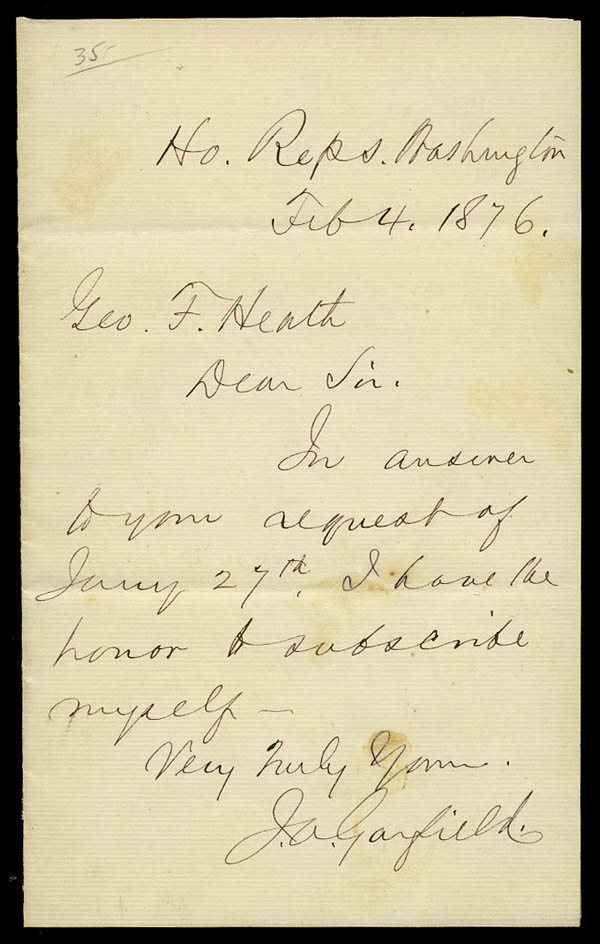 35
Ho. Reps. Washington
Feb 4. 1876.
Geo. F. Heath
Dear Sir.
In answer
to your request of
Jany 27th, I have the
honor to subscribe
myself —
Very Truly Yours.
J.A. Garfield.